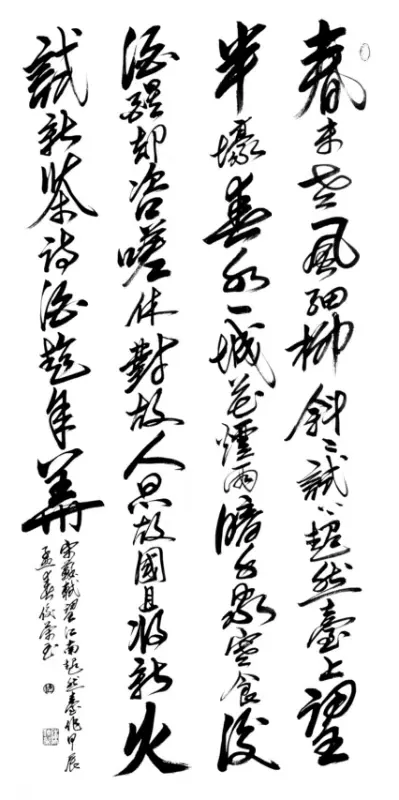 春未老風細柳斜〻試上超然臺上望
半壕春水一城花煙雨暗千家寒食後
酒醒却咨嗟休對故人思故國且將新火
試新茶詩酒趁年華
宋蘇軾望江南超然臺作甲辰
孟春書